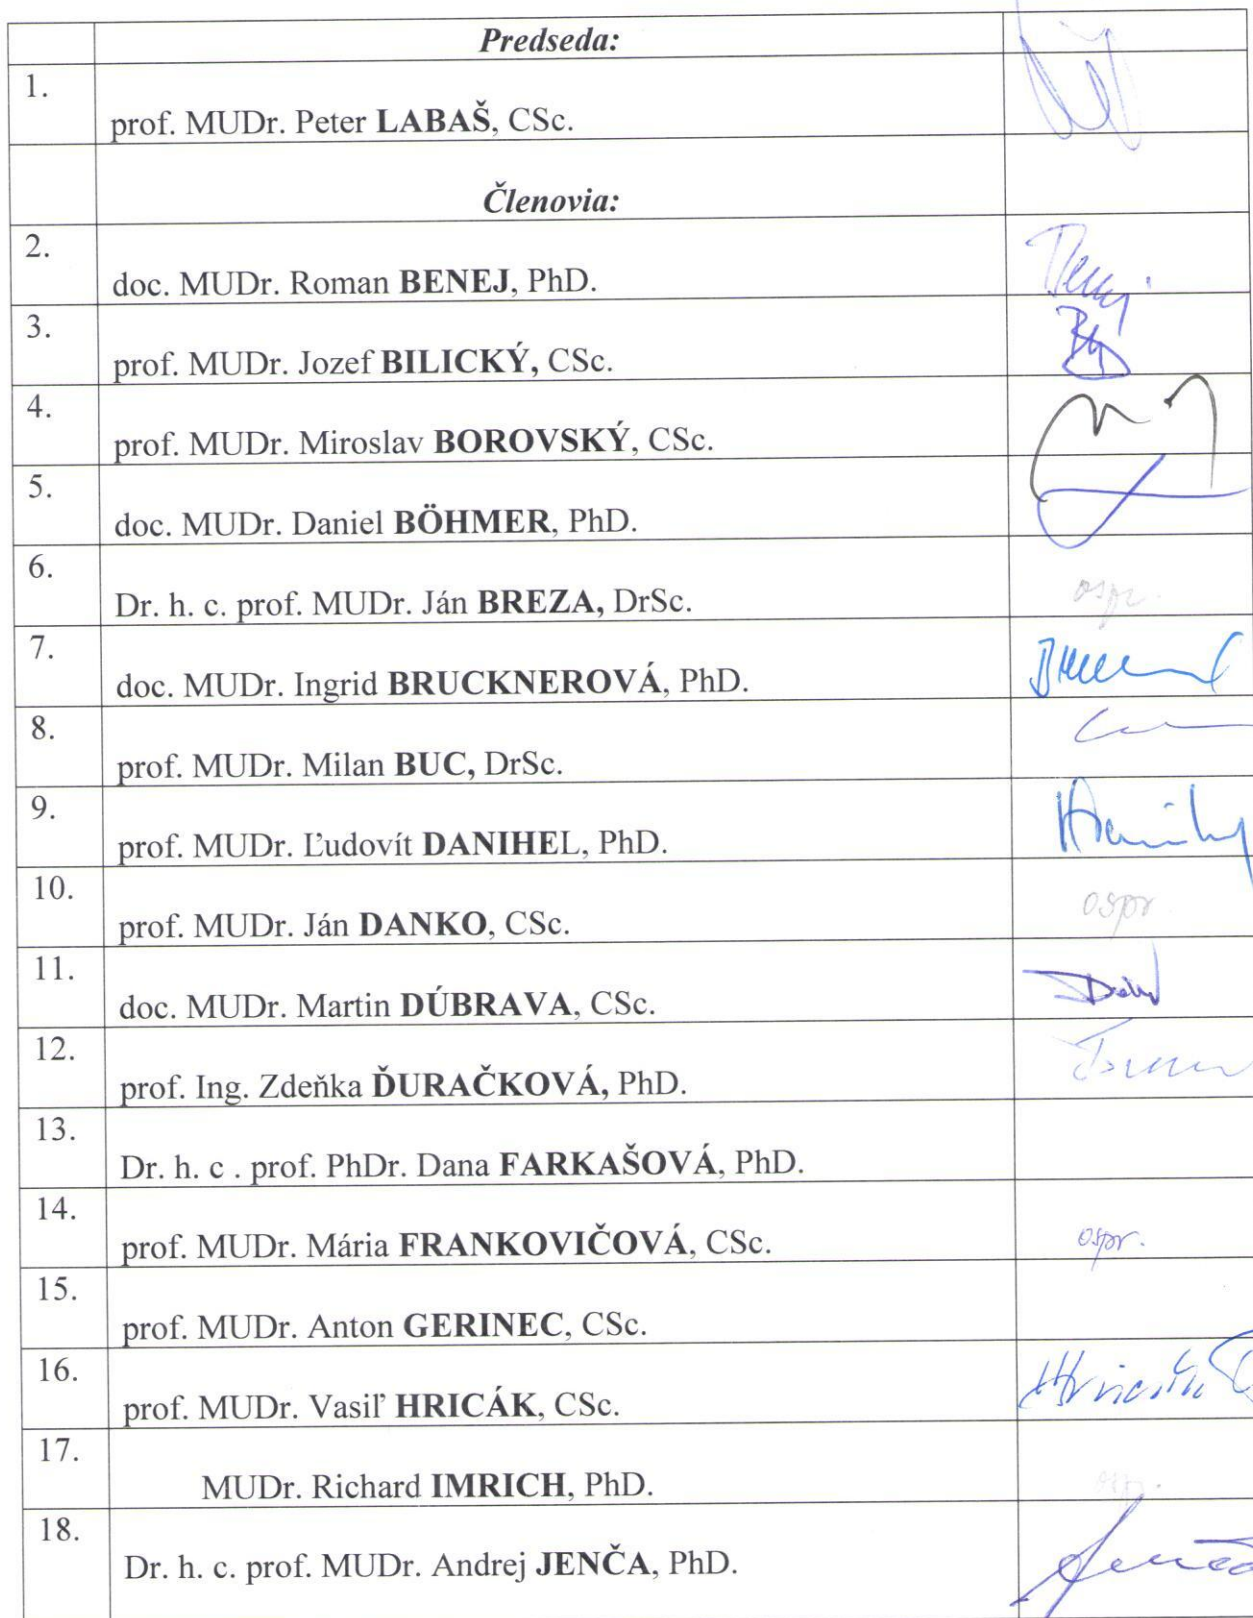 Predseda:
1.
prof. MUDr. Peter LABAŠ, CSc.
Členovia:
2.
doc. MUDr. Roman BENEJ, PhD.
3.
prof. MUDr. Jozef BILICKÝ, CSc.
4.
prof. MUDr. Miroslav BOROVSKÝ, CSc.
5.
doc. MUDr. Daniel BÖHMER, PhD.
6.
Dr. h. c. prof. MUDr. Ján BREZA, DrSc. ospr.
7.
doc. MUDr. Ingrid BRUCKNEROVÁ, PhD.
8.
prof. MUDr. Milan BUC, DrSc.
9.
prof. MUDr. Ľudovít DANIHEL, PhD.
10.
prof. MUDr. Ján DANKO, CSc. ospr
11.
doc. MUDr. Martin DÚBRAVA, CSc.
12.
prof. Ing. Zdeňka ĎURAČKOVÁ, PhD.
13.
Dr. h. c . prof. PhDr. Dana FARKAŠOVÁ, PhD.
14.
prof. MUDr. Mária FRANKOVIČOVÁ, CSc. ospr.
15.
prof. MUDr. Anton GERINEC, CSc.
16.
prof. MUDr. Vasiľ HRICÁK, CSc.
17.
MUDr. Richard IMRICH, PhD.
18.
Dr. h. c. prof. MUDr. Andrej JENČA, PhD.